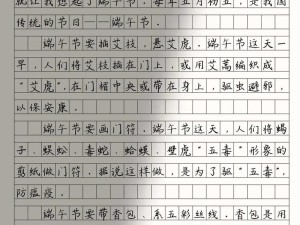 就让我想起了每年五月初五，是我国
传统的节日——端午节。
端午节要插艾枝，悬艾虎，端午节这天一
早，人们将艾枝插在门上，或用艾蒿编织成
“艾虎”，在门楣中央或带在身上，驱虫避邪，
以保安康。
端午节要画门符，端午节这天，人们将蝎
子、蜈蚣、毒蛇、蛤蟆、壁虎“五毒”形象的
剪纸做门符，据说这样做，是为了驱“五毒”，
防瘟疫。
端午节要带香包、系五彩丝线，香包是用